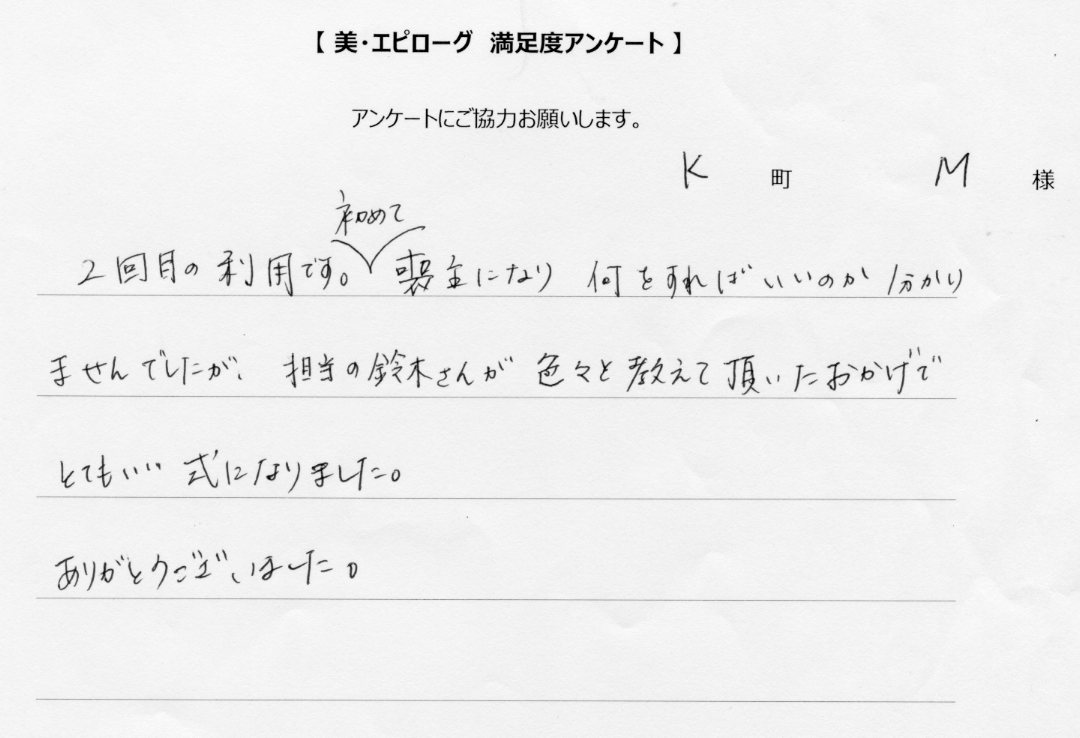 【 美・エピローグ 満足度アンケート 】
アンケートにご協力お願いします。
K 町 M 様
初めて
2回目の利用です。喪主になり 何をすればいいのか分かり
ませんでしたが、担当の鈴木さんが色々と教えて頂いたおかげで
とてもいい式になりました。
ありがとうございました。